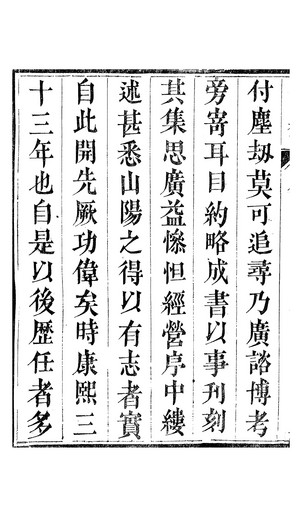 付塵刼莫可追尋乃廣諮博考
旁寄耳目約略成書以事刊刻
其集思廣益慘怛經營序中縷
述甚悉山陽之得以有志者實
自此開先厥功偉矣時康熙三
十三年也自是以後歷任者多